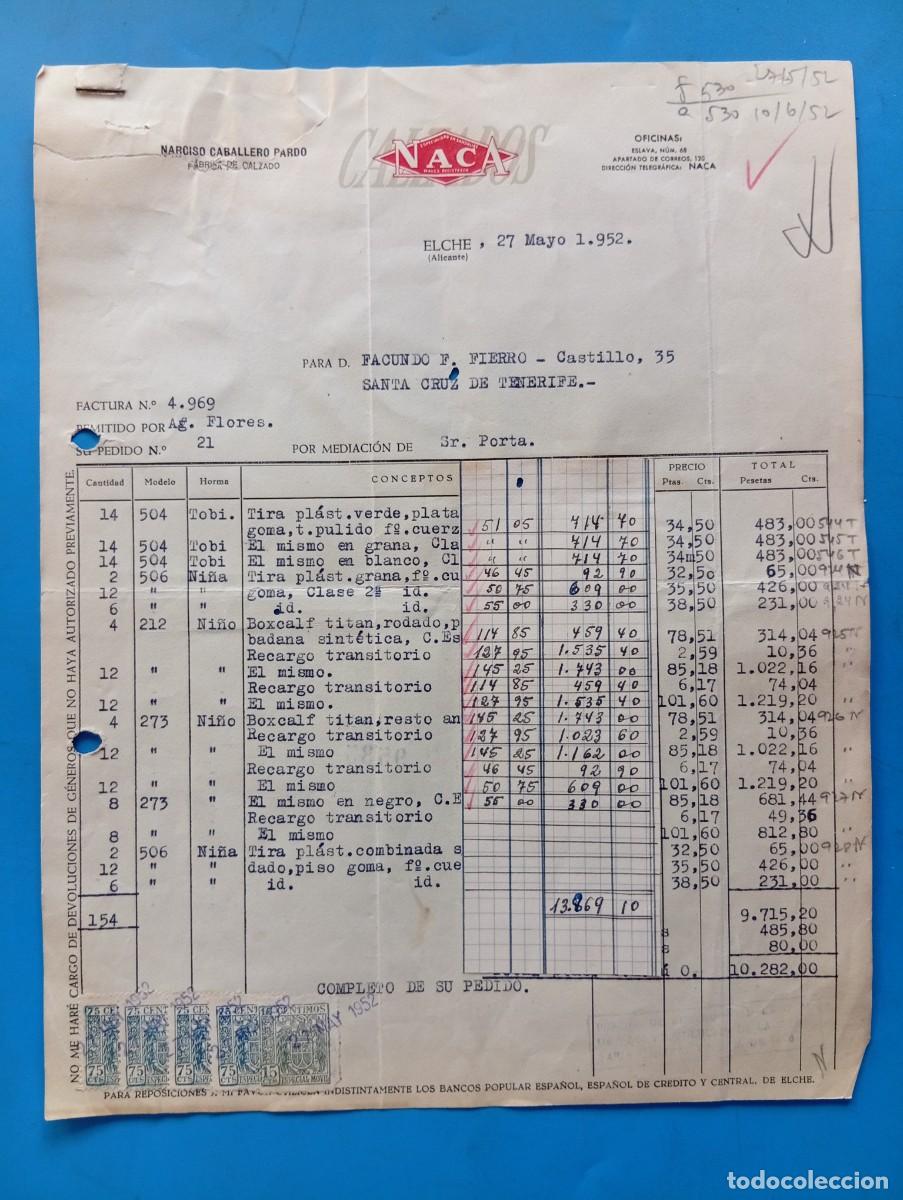 f 530 27/5/52
a 530 10/6/52
NARCISO CABALLERO PARDO
FÁBRICA DE CALZADO
CALZADOS
NACA
MARCA REGISTRADA
OFICINAS:
ESLAVA, NÚM. 68
APARTADO DE CORREOS, 120
DIRECCIÓN TELEGRÁFICA: NACA
ELCHE, 27 Mayo 1.952.
(Alicante)
PARA D. FACUNDO F. FIERRO - Castillo, 35
SANTA CRUZ DE TENERIFE.-
FACTURA N.º 4.969
REMITIDO POR Ag. Flores.
SU PEDIDO N.º 21 POR MEDIACIÓN DE Sr. Porta.
Cantidad Modelo Horma CONCEPTOS PRECIO Ptas. Cts. TOTAL Pesetas Cts.
14 504 Tobi. Tira plást.verde,plata
goma,t.pulido fº.cuerz 51 05 714 70 34,50 483,00 544 T
14 504 Tobi El mismo en grana, Cla " " 714 70 34,50 483,00 545 T
14 504 Tobi El mismo en blanco, Cl " " 714 70 34m50 483,00 546 T
2 506 Niña Tira plást.grana,fº.cu 46 45 92 90 32,50 65,00 924 N
12 " " goma, Clase 2ª id. 50 75 609 00 35,50 426,00
6 " " id. id. 55 00 330 00 38,50 231,00 924 N
4 212 Niño Boxcalf titan,rodado,p
badana sintética, C.Es 114 85 459 40 78,51 314,04 925 N
Recargo transitorio 127 95 1.535 40 2,59 10,36 "
12 " " El mismo. 145 25 1.743 00 85,18 1.022,16 "
Recargo transitorio 114 85 459 40 6,17 74,04
12 " " El mismo. 127 95 1.535 40 101,60 1.219,20 "
4 273 Niño Boxcalf titan,resto an 145 25 1.743 00 78,51 314,04 926 N
Recargo transitorio 127 95 1.023 60 2,59 10,36
12 " " El mismo 145 25 1.162 00 85,18 1.022,16 "
Recargo transitorio 46 45 92 90 6,17 74,04
12 " " El mismo 50 75 609 00 101,60 1.219,20 "
8 273 " El mismo en negro, C.E 55 00 330 00 85,18 681,44 927 N
Recargo transitorio 6,17 49,36
8 " " El mismo 101,60 812,80 "
2 506 Niña Tira plást.combinada s 32,50 65,00 928 N
12 " " dado,piso goma, fº.cue 35,50 426,00 "
6 " " id. id. 38,50 231,00 "
13.869 10
154 9.715,20
s 485,80
s 80,00
ó 0. 10.282,00
COMPLETO DE SU PEDIDO.
NO ME HARÉ CARGO DE DEVOLUCIONES DE GÉNEROS QUE NO HAYA AUTORIZADO PREVIAMENTE.
75 CENT 75 CENTI 75 CENTI 25 CENTI CÉNTIMOS
27 MAY 1952
75 CTS 75 CTS 75 CTS 75 CTS 15 ESPECIAL MOVIL
PARA REPOSICIONES INDISTINTAMENTE LOS BANCOS POPULAR ESPAÑOL, ESPAÑOL DE CREDITO Y CENTRAL, DE ELCHE.
todocoleccion